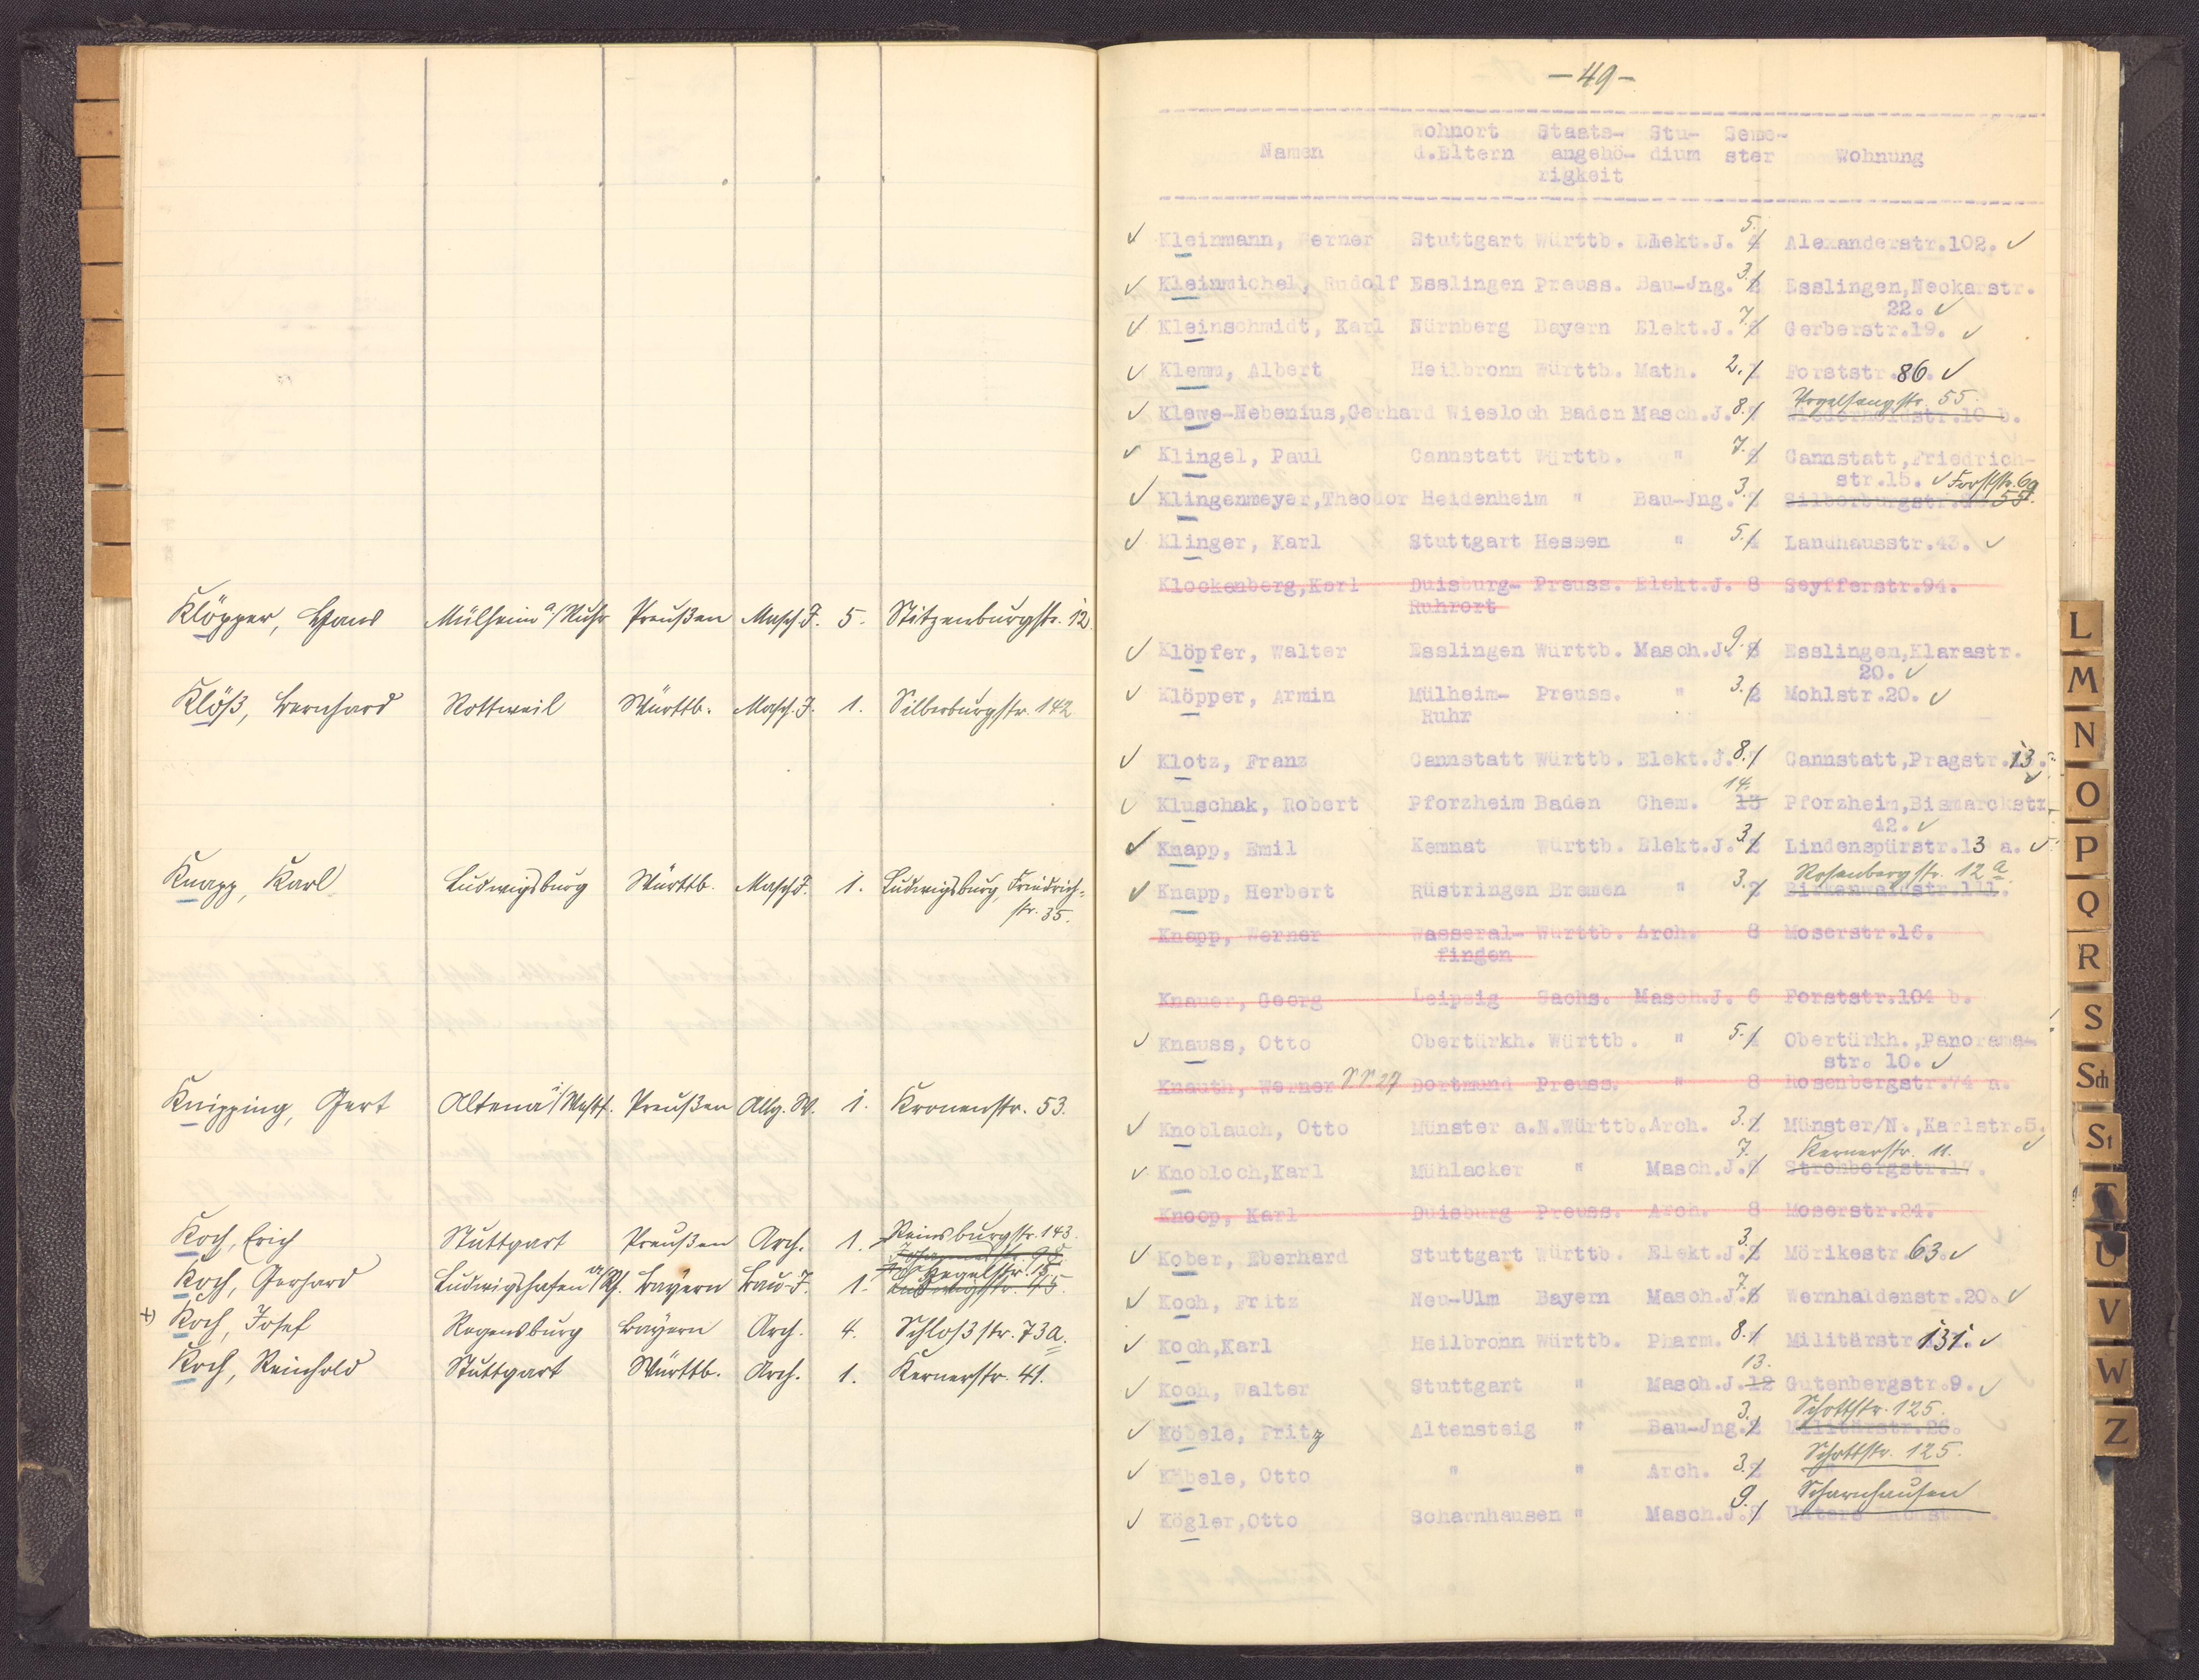 Klöpper, Hans Mülheim a./Ruhr Preußen Masch.J. 5. Stitzenburgstr. 12.
Klöß, Bernhard Rottweil Württb. Masch.J. 1. Silberburgstr. 142
Knapp, Karl Ludwigsburg Württb. Masch.J. 1. Ludwigsburg, Friedrich-
str. 35.
Knipping, Gert Altena i/Westf. Preußen Allg. W. 1. Kronenstr. 53.
Koch, Erich Stuttgart Preußen Arch. 1. Reinsburgstr. 143.
Koch, Gerhard Ludwigshafen a/Rh. Bayern Bau-J. 1. Hegelstr. 15.
+) Koch, Josef Regensburg Bayern Arch. 4. Schloßstr. 73a.
Koch, Reinhold Stuttgart Württb. Arch. 1. Kernerstr. 41.
-49-
Wohnort Staats- Stu- Seme-
Namen d.Eltern angehö- dium ster Wohnung
rigkeit
Kleinmann, Werner Stuttgart Württb. Elekt.J. 5. 4 Alexanderstr.102.
Kleinmichel, Rudolf Esslingen Preuss. Bau-Jng. 3. 2 Esslingen,Neckarstr.
22.
Kleinschmidt, Karl Nürnberg Bayern Elekt.J. 7. Gerberstr.19.
Klemm, Albert Heilbronn Württb. Math. 2. 1 Forststr.86.
Vogelsangstr. 55.
Klewe-Nebenius,Gerhard Wiesloch Baden Masch.J. 8. 7 Wiederholdstr.10 b.
Klingel, Paul Cannstatt Württb. " 7. Cannstatt,Friedrich-
str.15. Forststr. 69
Klingenmeyer,Theodor Heidenheim " Bau-Jng. 3. 2 Silberburgstr.
Klinger, Karl Stuttgart Hessen " 5. 4 Landhausstr.43.
Klockenberg,Karl Duisburg- Preuss. Elekt.J. 8 Seyfferstr.94.
Ruhrort
Klöpfer, Walter Esslingen Württb. Masch.J. 9. 8 Esslingen,Klarastr.
20.
Klöpper, Armin Mülheim- Preuss. " 3. 2 Mohlstr.20.
Ruhr
Klotz, Franz Cannstatt Württb. Elekt.J. 8. Cannstatt,Pragstr.13.
14.
Kluschak, Robert Pforzheim Baden Chem. 13 Pforzheim,Bismarckstr.
42.
Knapp, Emil Kemnat Württb. Elekt.J. 3. 2 Lindenspürstr.13 a.
Rosenbergstr. 12 a.
Knapp, Herbert Rüstringen Bremen " 3. 2 Birkenwaldstr.111.
Knapp, Werner Wasseral- Württb. Arch. 8 Moserstr.16.
fingen
Knauer, Georg Leipzig Sachs. Masch.J. 6 Forststr.104 b.
Knauss, Otto Obertürkh. Württb. " 5. 4 Obertürkh.,Panorama-
str. 10.
Knauth, Werner SS 27 Dortmund Preuss. " 8 Rosenbergstr.74 a.
Knoblauch, Otto Münster a.N.Württb.Arch. 3. 2 Münster/N.,Karlstr.5.
7. Kernerstr. 11.
Knobloch,Karl Mühlacker " Masch.J. Strohbergstr.17.
Knoop, Karl Duisburg Preuss. Arch. 8 Moserstr.24.
Kober, Eberhard Stuttgart Württb. Elekt.J. 3. 2 Mörikestr.63.
Koch, Fritz Neu-Ulm Bayern Masch.J. 7. 6 Wernhaldenstr.20.
Koch,Karl Heilbronn Württb. Pharm. 8. Militärstr.131.
13.
Koch, Walter Stuttgart " Masch.J. 12 Gutenbergstr.9.
Schottstr. 125.
Köbele, Fritz Altensteig " Bau-Jng. 3. 2 Militärstr.26.
Schottstr. 125.
Köbele, Otto " " Arch. 3. 2
Scharnhausen
Kögler,Otto Scharnhausen " Masch.J. 9. Untere
L
M
N
O
P
Q
R
S
Sch
St
T
U
V
W
Z